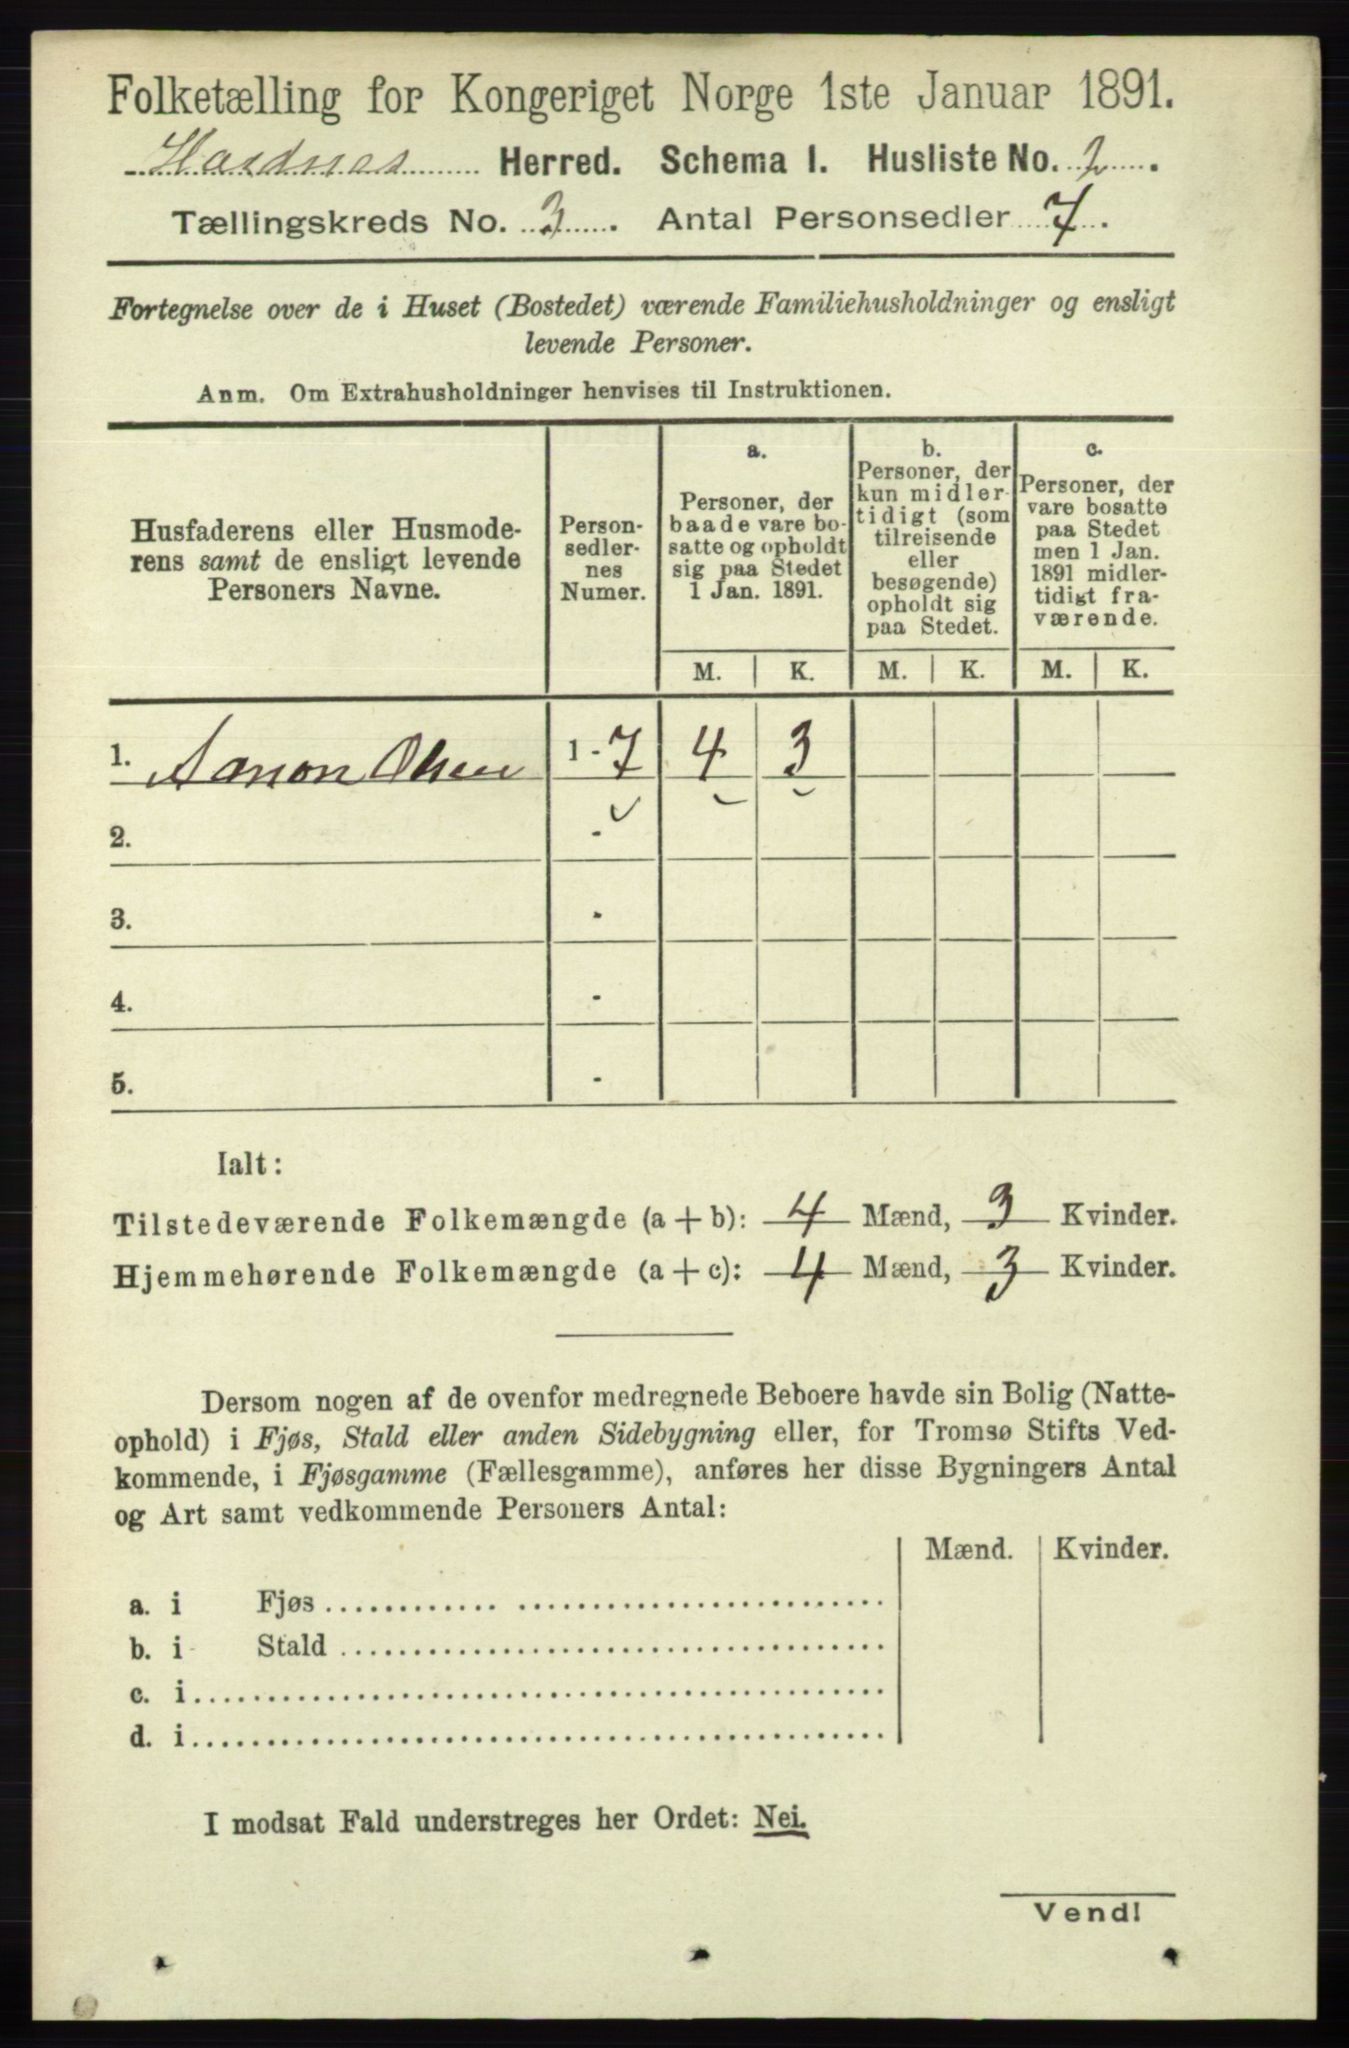 Folketælling for Kongeriget Norge 1ste Januar 1891.
Herred. Schema I. Husliste No. 2.
Tællingskreds No. 3. Antal Personsedler 7.
Fortegnelse over de i Huset (Bostedet) værende Familiehusholdninger og ensligt
levende Personer.
Anm. Om Extrahusholdninger henvises til Instruktionen.
Husfaderens eller Husmode-
rens samt de ensligt levende
Personers Navne.
Person-
sedler-
nes
Numer.
a.
Personer, der
baade vare bo-
satte og opholdt
sig paa Stedet
1 Jan. 1891.
b.
Personer, der
kun midler-
tidigt (som
tilreisende
eller
besøgende)
opholdt sig
paa Stedet.
c.
Personer, der
vare bosatte
paa Stedet
men 1 Jan.
1891 midler-
tidigt fra-
værende.
M. K. M. K. M. K.
1. Aanon Olsen 1 - 7 4 3
2. -
3. -
4. -
5. -
Ialt:
Tilstedeværende Folkemængde (a + b): 4 Mænd, 3 Kvinder.
Hjemmehørende Folkemængde (a + c): 4 Mænd, 3 Kvinder.
Dersom nogen af de ovenfor medregnede Beboere havde sin Bolig (Natte-
ophold) i Fjøs, Stald eller anden Sidebygning eller, for Tromsø Stifts Ved-
kommende, i Fjøsgamme (Fællesgamme), anføres her disse Bygningers Antal
og Art samt vedkommende Personers Antal:
Mænd. Kvinder.
a. i Fjøs
b. i Stald
c. i
d. i
I modsat Fald understreges her Ordet: Nei.
Vend!